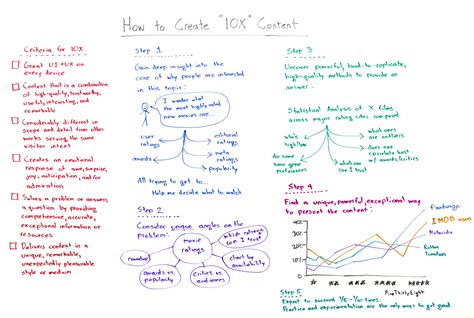 How to Create "10X" Content
Criteria for 10X
Great UI + UX on
every device
Content that is a combination
of high-quality, trustworthy,
useful, interesting, and
remarkable
Considerably different in
scope and detail from other
works serving the same
visitor intent
Creates an emotional
response of awe, surprise,
joy, anticipation, and/or
admiration
Solves a problem or answers
a question by providing
comprehensive, accurate,
exceptional information or
resources
Delivers content in a
unique, remarkable,
unexpectedly pleasurable
style or medium
Step 1
Gain deep insight into the
core of why people are interested
in this topic:
I wonder what
the most highly rated
new movies are...
user
ratings
awards
editorial
ratings
meta
ratings
popularity
All trying to get to...
Help me decide what to watch
Step 2
Consider unique angles on the
problem:
movie
ratings
which ratings
can I trust
roundup
awards vs.
popularity
critics vs
audiences
chart by
availability
Step 3
Uncover powerful, hard-to-replicate,
high-quality methods to provide an
answer:
Statistical Analysis of X films
across major rating sites compared
who's
high/low
do some
have great
metrics
what ones
are outliers
does one
correlate best
w/ awards/critics
Step 4
Find a unique, powerful, exceptional way
to present the content:
Fandango
IMDB users
Metacritic
Rotten
Tomatoes
40%
30%
20%
10%
FiveThirtyEight
Step 5
Expect to succeed 1/5 - 1/10 times.
Practice and experimentation are the only ways to get good.